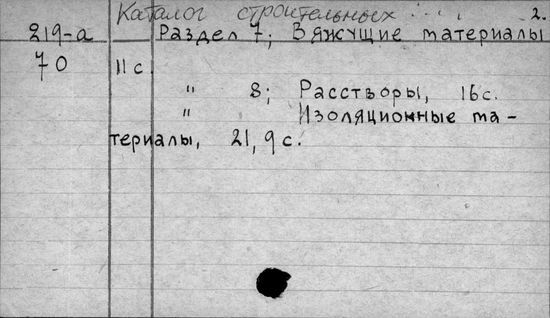 Каталог строительных . . . . 2.
219-а Раздел 7; Вяжущие материалы
70 11 с.
" 8; Расстворы, 16 с.
" Изоляционные ма-
териалы, 21, 9 с.